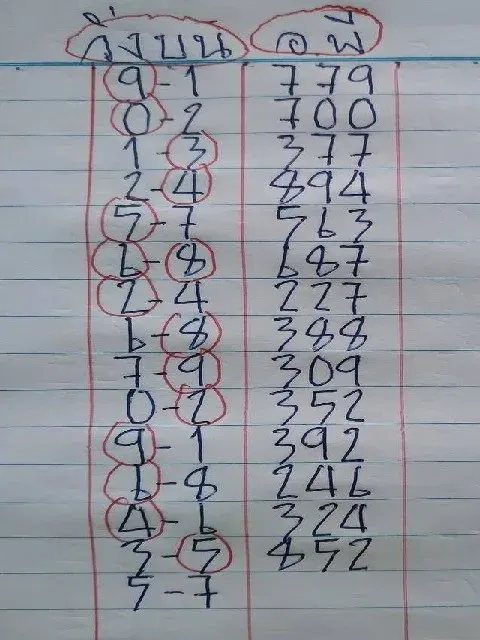 วิ่งบน อ.พี
9-1 779
0-2 700
1-3 377
2-4 894
5-7 563
6-8 687
2-4 227
6-8 388
7-9 309
0-2 352
9-1 392
6-8 246
4-6 324
3-5 852
5-7